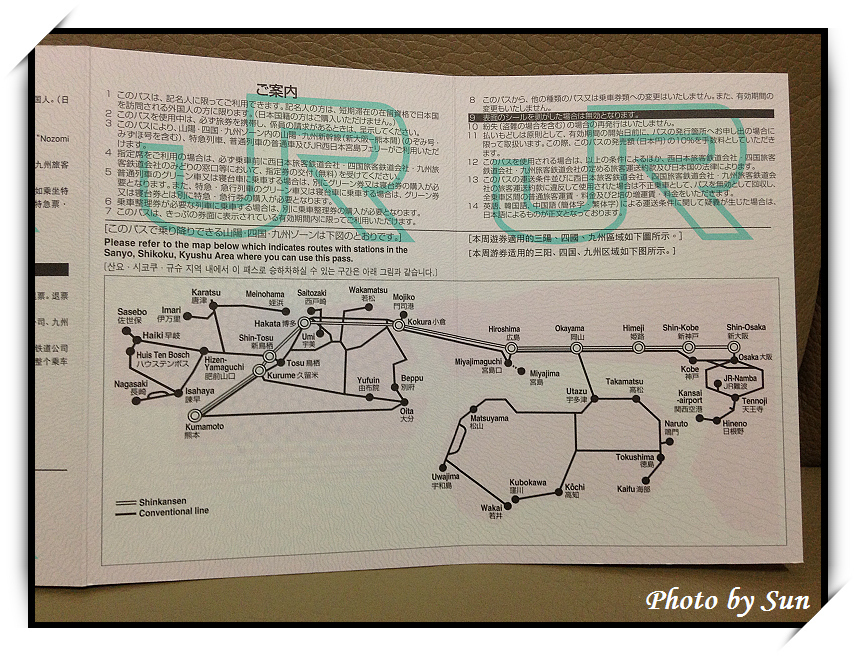 国人。(日
"Nozomi
九州旅客
如乗坐特
特急票・
ご案内
1 このパスは、記名人に限ってご利用できます。記名人の方は、短期滞在の在留資格で日本国
を訪問される外国人の方に限ります。(日本国籍の方はご購入いただけません。)
2 このパスを使用中は、必ず旅券を携帯し、係員の請求があるときは、呈示してください。
3 このパスにより、山陽・四国・九州ゾーン内の山陽・九州新幹線(新大阪-熊本間)ののぞみ号・
みずほ号を含む)、特急列車、普通列車の普通車及びJR西日本宮島フェリーがご利用いただ
けます。
4 指定席をご利用の場合は、必ず乗車前に西日本旅客鉄道会社・四国旅客鉄道会社・九州旅
客鉄道会社のみどりの窓口等において、指定券の交付(無料)を受けてください。
5 普通列車のグリーン車又は寝台車に乗車する場合は、別にグリーン券又は寝台券の購入が必
要となります。また、特急・急行列車のグリーン車又は寝台車に乗車する場合は、グリーン券
又は寝台券とは別に特急・急行券の購入が必要となります。
6 乗車整理券が必要な列車に乗車する場合は、別に乗車整理券の購入が必要となります。
7 このパスは、きっぷの券面に表示されている有効期間内に限ってご利用いただけます。
[このパスで乗り降りできる山陽・四国・九州ゾーンは下図のとおりです。]
Please refer to the map below which indicates routes with stations in the
Sanyo, Shikoku, Kyushu Area where you can use this pass.
[산요・시코쿠・규슈 지역 내에서 이 패스로 승하차하실 수 있는 구간은 아래 그림과 같습니다.]
8 このパスから、他の種類のパス又は乗車券類への変更はいたしません。また、有効期間の
変更もいたしません。
9 表面のシールを剥がした場合は無効となります。
10 紛失(盗難の場合を含む)の場合の再発行はいたしません。
11 払いもどしは原則として、有効期間の開始日前に、パスの発行箇所へお申し出の場合に
限って取扱います。この際、このパスの発売額(日本円)の10%を手数料としていただき
ます。
12 このパスを使用される場合は、以上の条件によるほか、西日本旅客鉄道会社・四国旅客
鉄道会社・九州旅客鉄道会社の定める旅客運送約款及び日本国の法律によります。
13 このパスの運送条件並びに西日本旅客鉄道会社・四国旅客鉄道会社・九州旅客鉄道会社
の旅客運送約款に違反して使用された場合は不正乗車として、パスを無効として回収し、
全乗車区間の普通旅客運賃・料金及び2倍の増運賃・料金をいただきます。
14 英語、韓国語、中国語(簡体字/繁体字)による運送条件に関して疑義が生じた場合は、
日本語によるものが正文となっております。
[本周遊券適用的三陽、四國、九州區域如下圖所示。]
[本周游券适用的三阳、四国、九州区域如下图所示。]
JR JR
Karatsu
唐津
Imari
伊万里
Meinohama
姪浜
Saitozaki
西戸崎
Wakamatsu
若松
Mojiko
門司港
Kokura 小倉
Sasebo
佐世保
Haiki 早岐
Hakata 博多
Umi
宇美
Shin-Tosu
新鳥栖
Huis Ten Bosch
ハウステンボス
Hizen-
Yamaguchi
肥前山口
Tosu 鳥栖
Kurume 久留米
Nagasaki
長崎
Isahaya
諫早
Yufuin
由布院
Beppu
別府
Oita
大分
Kumamoto
熊本
Hiroshima
広島
Okayama
岡山
Himeji
姫路
Shin-Kobe
新神戸
Shin-Osaka
新大阪
Miyajimaguchi
宮島口
Miyajima
宮島
Kobe
神戸
Osaka 大阪
JR-Namba
JR難波
Utazu
宇多津
Takamatsu
高松
Kansai
-airport
関西空港
Tennoji
天王寺
Hineno
日根野
Matsuyama
松山
Naruto
鳴門
Tokushima
徳島
Uwajima
宇和島
Kubokawa
窪川
Kōchi
高知
Kaifu 海部
Wakai
若井
Shinkansen
Conventional line
Photo by Sun